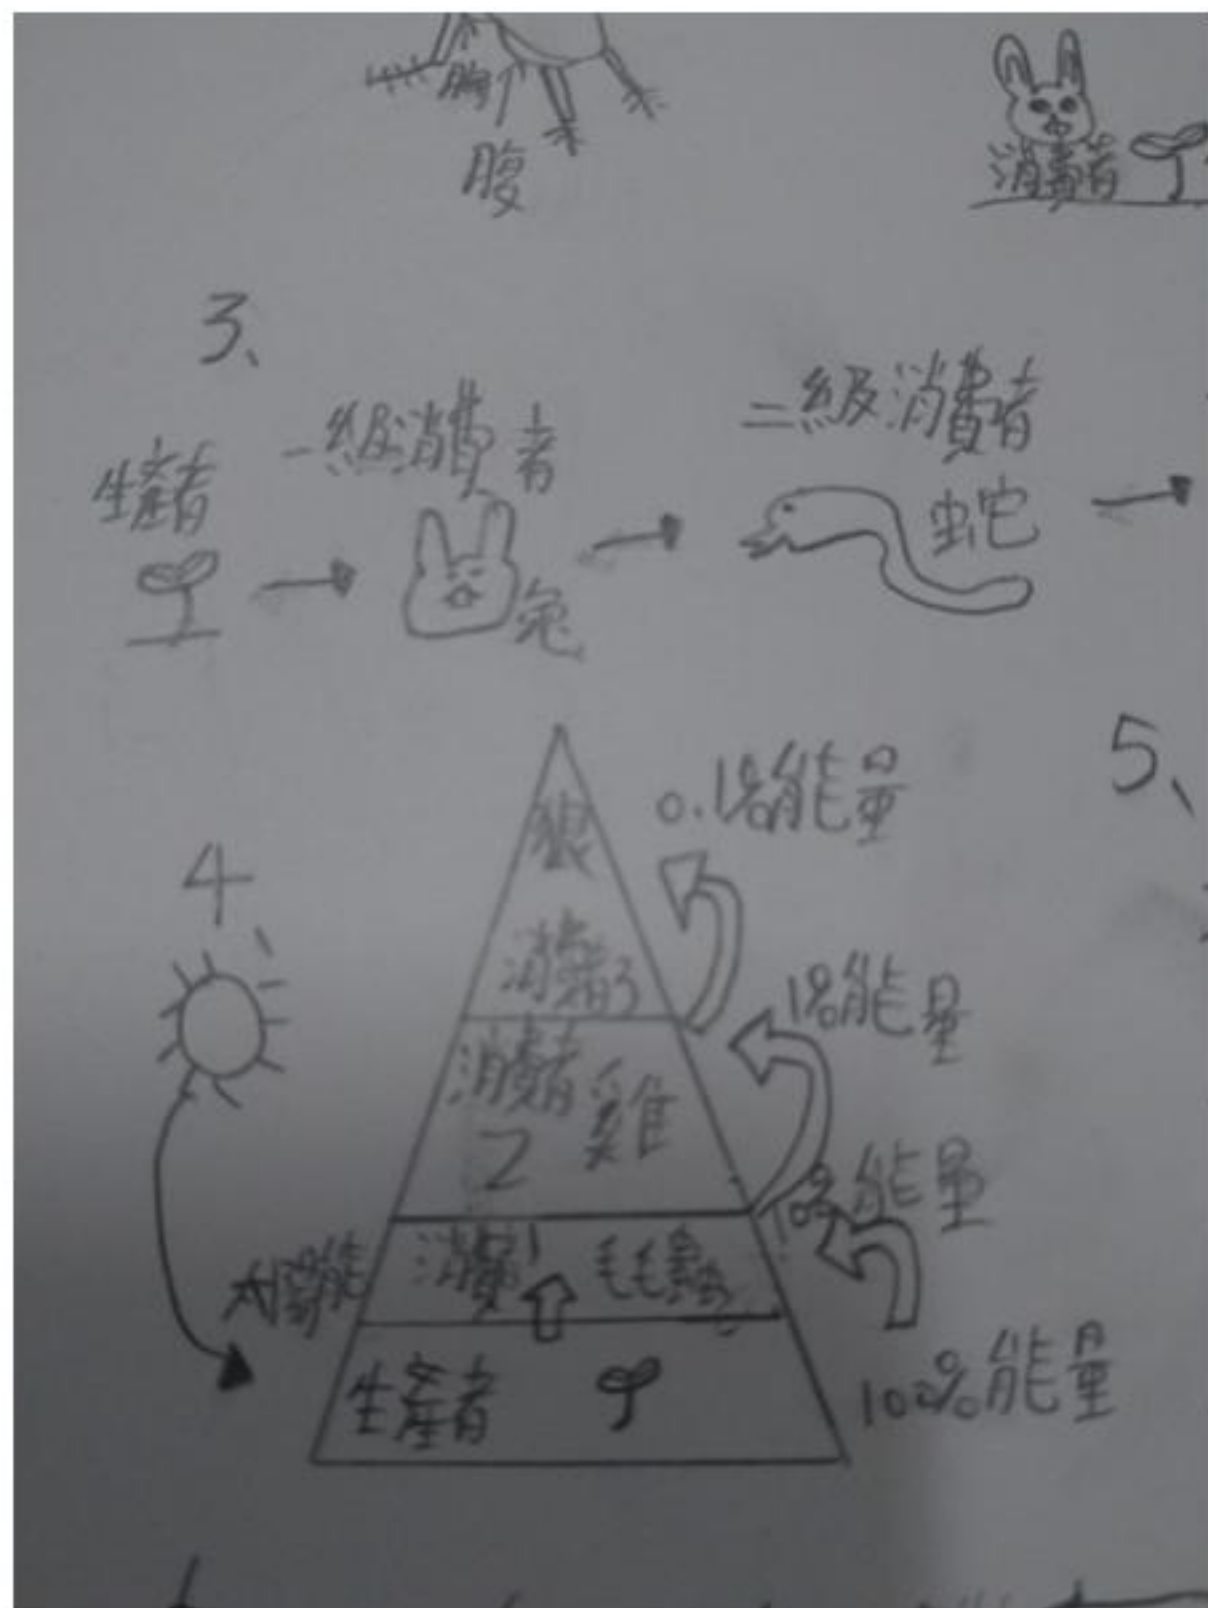 胸
腹
消費者
3、
生產者
一級消費者
兔
二級消費者
蛇
4、
5、
狼
消費者3
0.1%能量
消費者
2
雞
1%能量
太陽能
消費者1
毛毛蟲
10%能量
生產者
100%能量